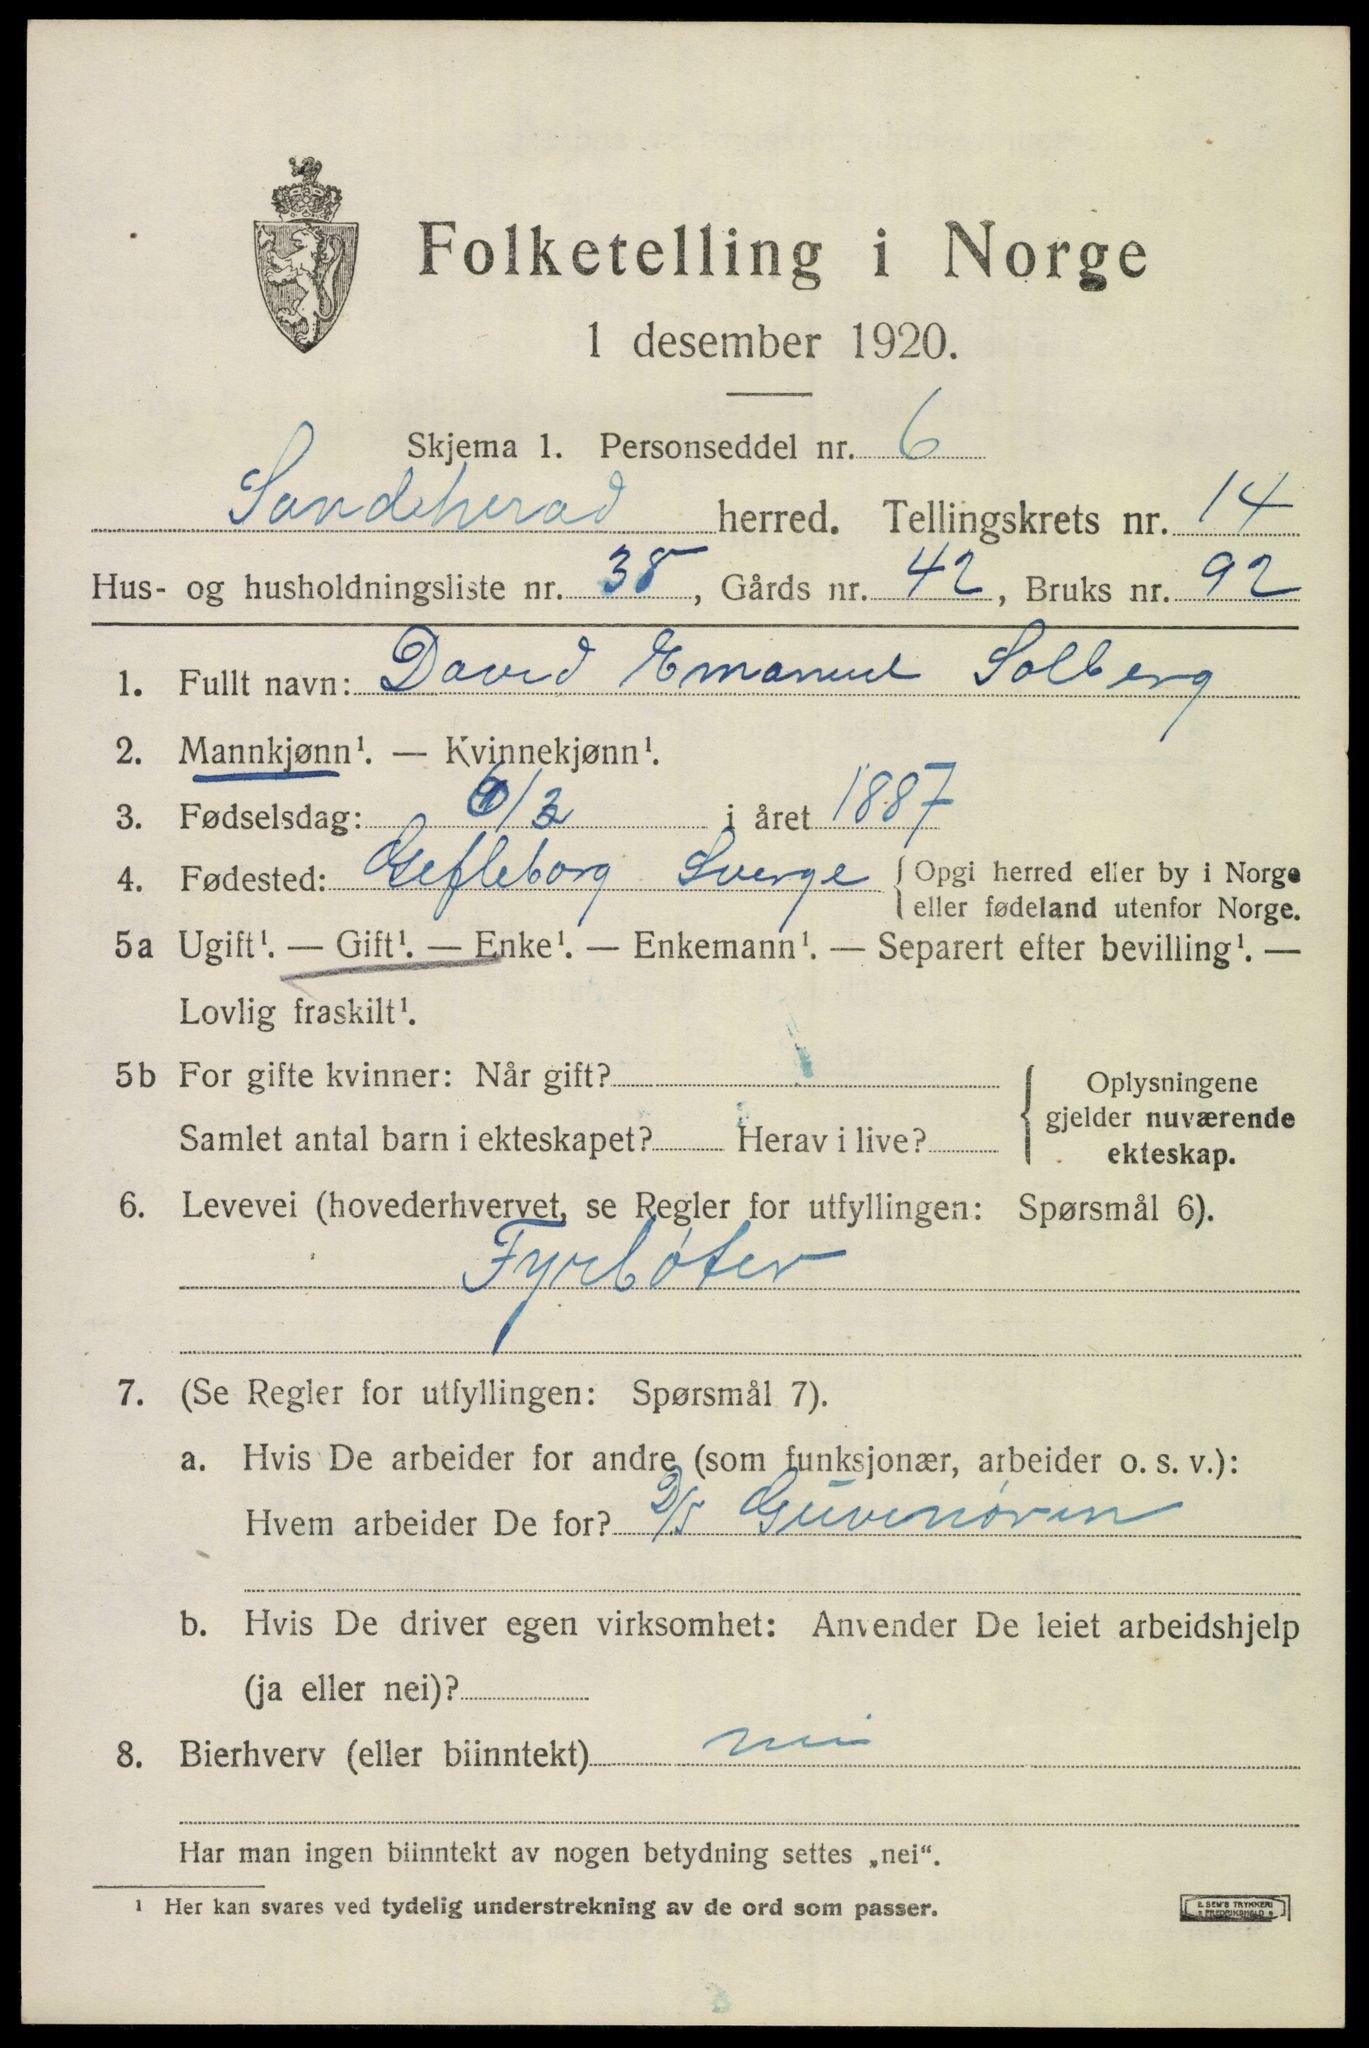 Folketelling i Norge
1 desember 1920.
Skjema 1. Personseddel nr. 6
Sandeherad herred. Tellingskrets nr. 14
Hus- og husholdningsliste nr. 38, Gårds nr. 42, Bruks nr. 92
1. Fullt navn: David Emanuel Solberg
2. Mannkjønn¹. — Kvinnekjønn¹.
3. Fødselsdag: 6/3 i året 1887
4. Fødested: Gefleborg Sverge { Opgi herred eller by i Norge
eller fødeland utenfor Norge.
5a Ugift¹. — Gift¹. — Enke¹. — Enkemann¹. — Separert efter bevilling¹. —
Lovlig fraskilt¹.
5b For gifte kvinner: Når gift?
Samlet antal barn i ekteskapet? Herav i live?
{ Oplysningene
gjelder nuværende
ekteskap.
6. Levevei (hovederhvervet, se Regler for utfyllingen: Spørsmål 6).
Fyrbøter
7. (Se Regler for utfyllingen: Spørsmål 7).
a. Hvis De arbeider for andre (som funksjonær, arbeider o. s. v.):
Hvem arbeider De for? D/S Guvenøren
b. Hvis De driver egen virksomhet: Anvender De leiet arbeidshjelp
(ja eller nei)?
8. Bierhverv (eller biinntekt) nei
Har man ingen biinntekt av nogen betydning settes „nei“.
¹ Her kan svares ved tydelig understrekning av de ord som passer.
E. SEM'S TRYKKERI
FREDRIKSHALD